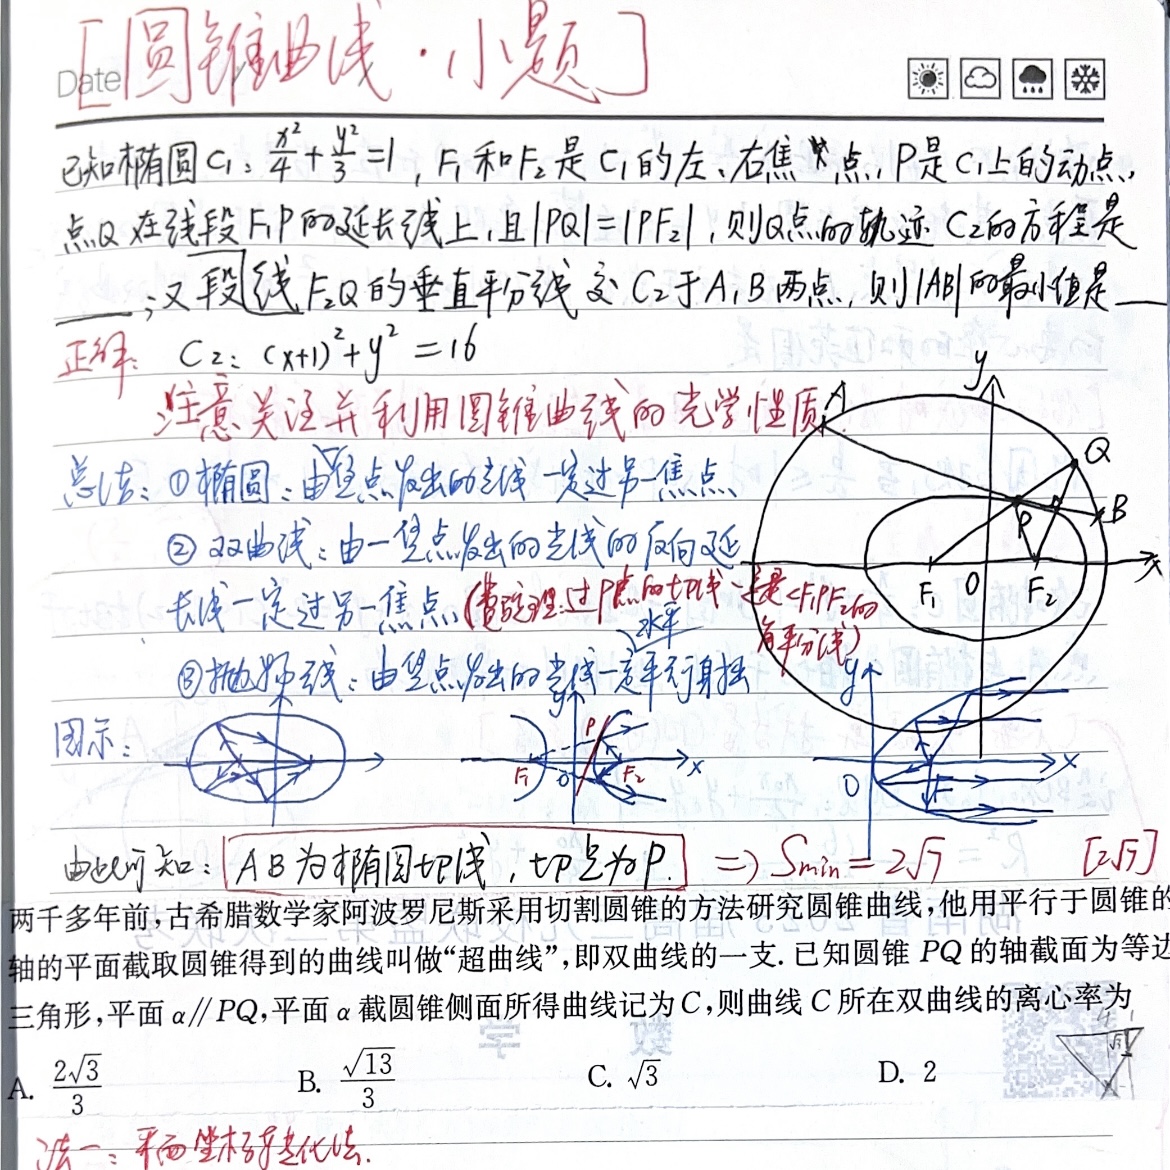 Date [圆锥曲线·小题]
已知椭圆C₁: x²/4 + y²/3 = 1, F₁和F₂是C₁的左、右焦点,P是C₁上的动点,
点Q在线段F₁P的延长线上,且|PQ|=|PF₂|,则Q点的轨迹C₂的方程是
____;又段线F₂Q的垂直平分线交C₂于A,B两点,则|AB|的最小值是____
正解: C₂: (x+1)²+y²=16
注意关注并利用圆锥曲线的光学性质
总结:①椭圆:由焦点发出的光线一定过另一焦点
②双曲线:由一焦点发出的光线的反向延
长线一定过另一焦点(常驻理:过P点的切线一定是∠F₁PF₂的
角平分线)
水平
③抛物线:由焦点发出的光线一定平行轴
y
A
Q
B
P
F₁ O F₂ x
图示:
y
P
F₁ O F₂ x
y
O F x
由此可知: AB为椭圆切线,切点为P. ⇒ Smin = 2√7 [2√7]
两千多年前,古希腊数学家阿波罗尼斯采用切割圆锥的方法研究圆锥曲线,他用平行于圆锥的
轴的平面截取圆锥得到的曲线叫做“超曲线”,即双曲线的一支.已知圆锥 PQ 的轴截面为等边
三角形,平面 α∥PQ,平面 α 截圆锥侧面所得曲线记为 C,则曲线 C 所在双曲线的离心率为
A. 2√3/3 B. √13/3 C. √3 D. 2
法一:平面坐标系